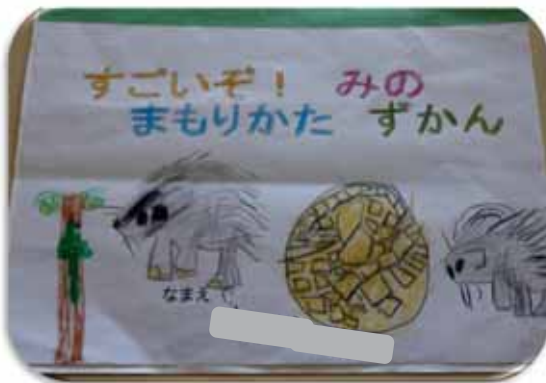 すごいぞ! みの
まもりかた ずかん
なまえ